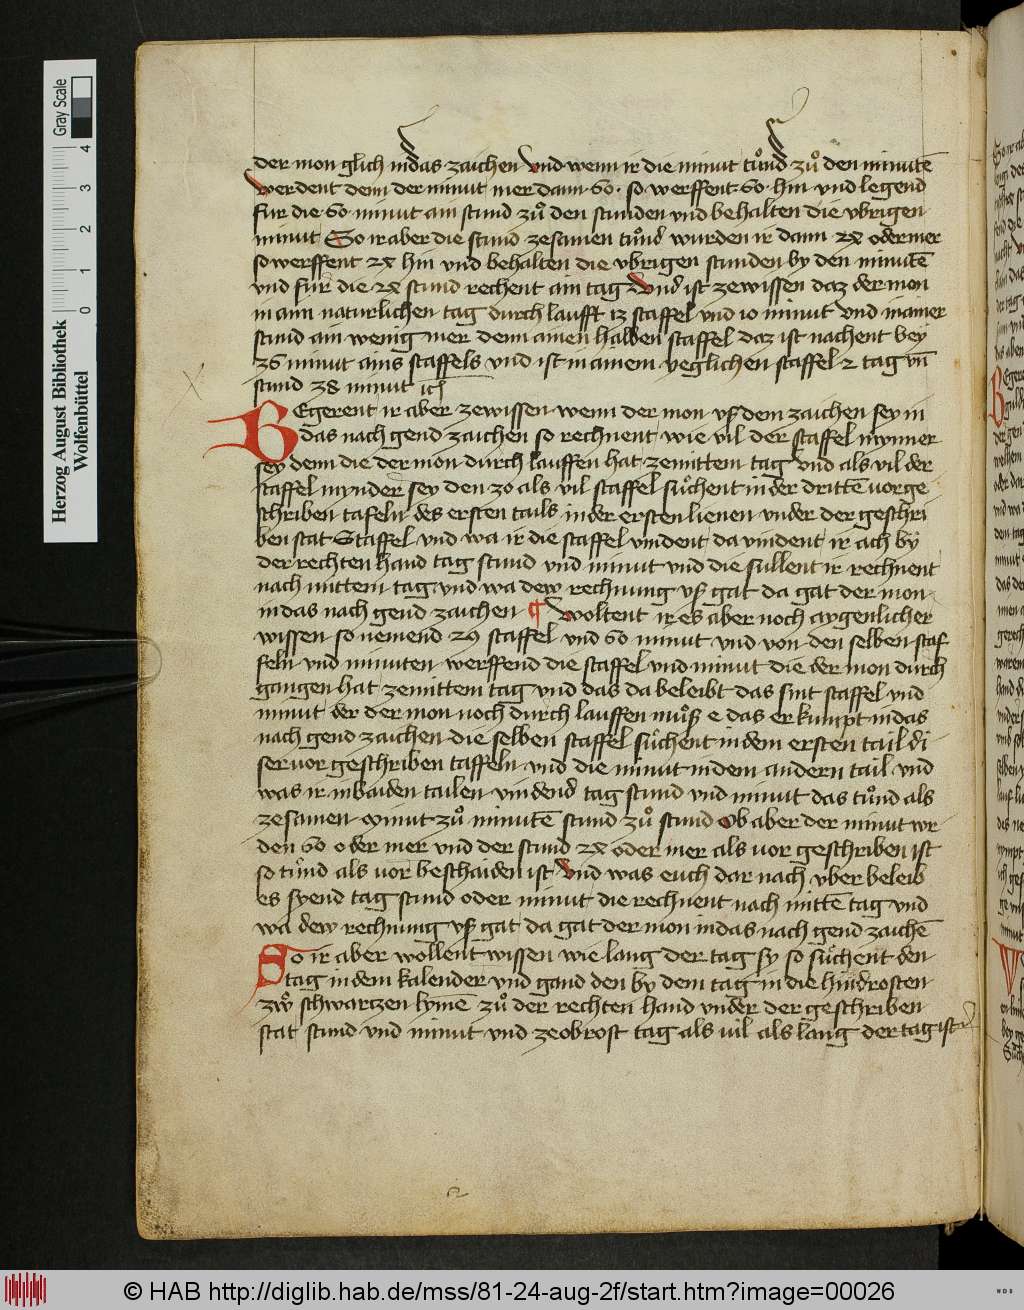 der mon glich in das zaichen Vnd wenn ir die minut tuͦnd zuͦ den minutē
Werdent denn der minut mer dann 60 · so werffent 60 hin vnd legend
für die 60 minut ain stund zuͦ den stunden vnd behalten die vbrigen
minut So ir aber die stund zesamen tuͦnd wurden ir dann 24 oder mer
so werffent 24 hin vnd behalten die vbrigen stunden by den minutē
vnd für die 24 stund rechent ain tag Vnd ist zewissen daz der mon
in ain naturlichen tag durch laufft 13 staffel vnd 10 minut vnd in ainer
stund ain wenig mer denn ainen halben staffel daz ist nachent bey
36 minut ains staffels vnd ist in ainem yeglichen staffel 2 tag vn̄
stund 38 minut
BEgerent ir aber zewissen wenn der mon vß dem zaichen sey in
das nach gend zaichen so rechnent wie vil der staffel mynner
sey denn die der mon durch lauffen hat zemittem tag vnd als vil der
staffel mynder sey den 30 als vil staffel suͦchent in der drittē vorge
schriben tafeln des ersten tails in der ersten lienen vnder der geschri
ben stat Staffel vnd wa ir die staffel vindent da vindent ir ach by
der rechten hand tag stund vnd minut vnd die sullent ir rechnent
nach mittem tag vnd wa dew rechnung vß gat da gat der mon
in das nach gend zaichen ¶ Woltent ir es aber noch aygenlicher
wissen so nemend 29 staffel vnd 60 minut vnd von den selben staf
feln vnd minuten werffend die staffel vnd minut die der mon durch
gangen hat zemittem tag vnd das da beleibt das sint staffel vnd
minut der der mon noch durch lauffen muͦß e das er kumpt in das
nach gend zaichen die selben staffel suͦchent in dem ersten tail di
ser vor geschriben taffeln vnd die minut in dem andern tail vnd
was ir in baiden tailen vindend tag stund vnd minut das tuͦnd als
zesamen minut zuͦ minutē stund zuͦ stund Ob aber der minut wr
den 60 oder mer vnd der stund 24 oder mer als vor geschriben ist
so tuͦnd als vor beschaiden ist Vnd was euch dar nach vber beleib
es syend tag stund oder minut die rechnent nach mittē tag vnd
wa dew rechnung vß gat da gat der mon in das nach gend zaichē
So ir aber wollent wissen wie lang der tag sy so suͦchent den
tag in dem kalender vnd gand den by dem tag in die hindrosten
zwͦ schwartzen lynnē zuͦ der rechten hand vnder der geschriben
stat stund vnd minut vnd zeobrost tag als vil als lang der tag ist
Herzog August Bibliothek
Wolfenbüttel
0 1 2 3 4
Gray Scale
© HAB http://diglib.hab.de/mss/81-24-aug-2f/start.htm?image=00026